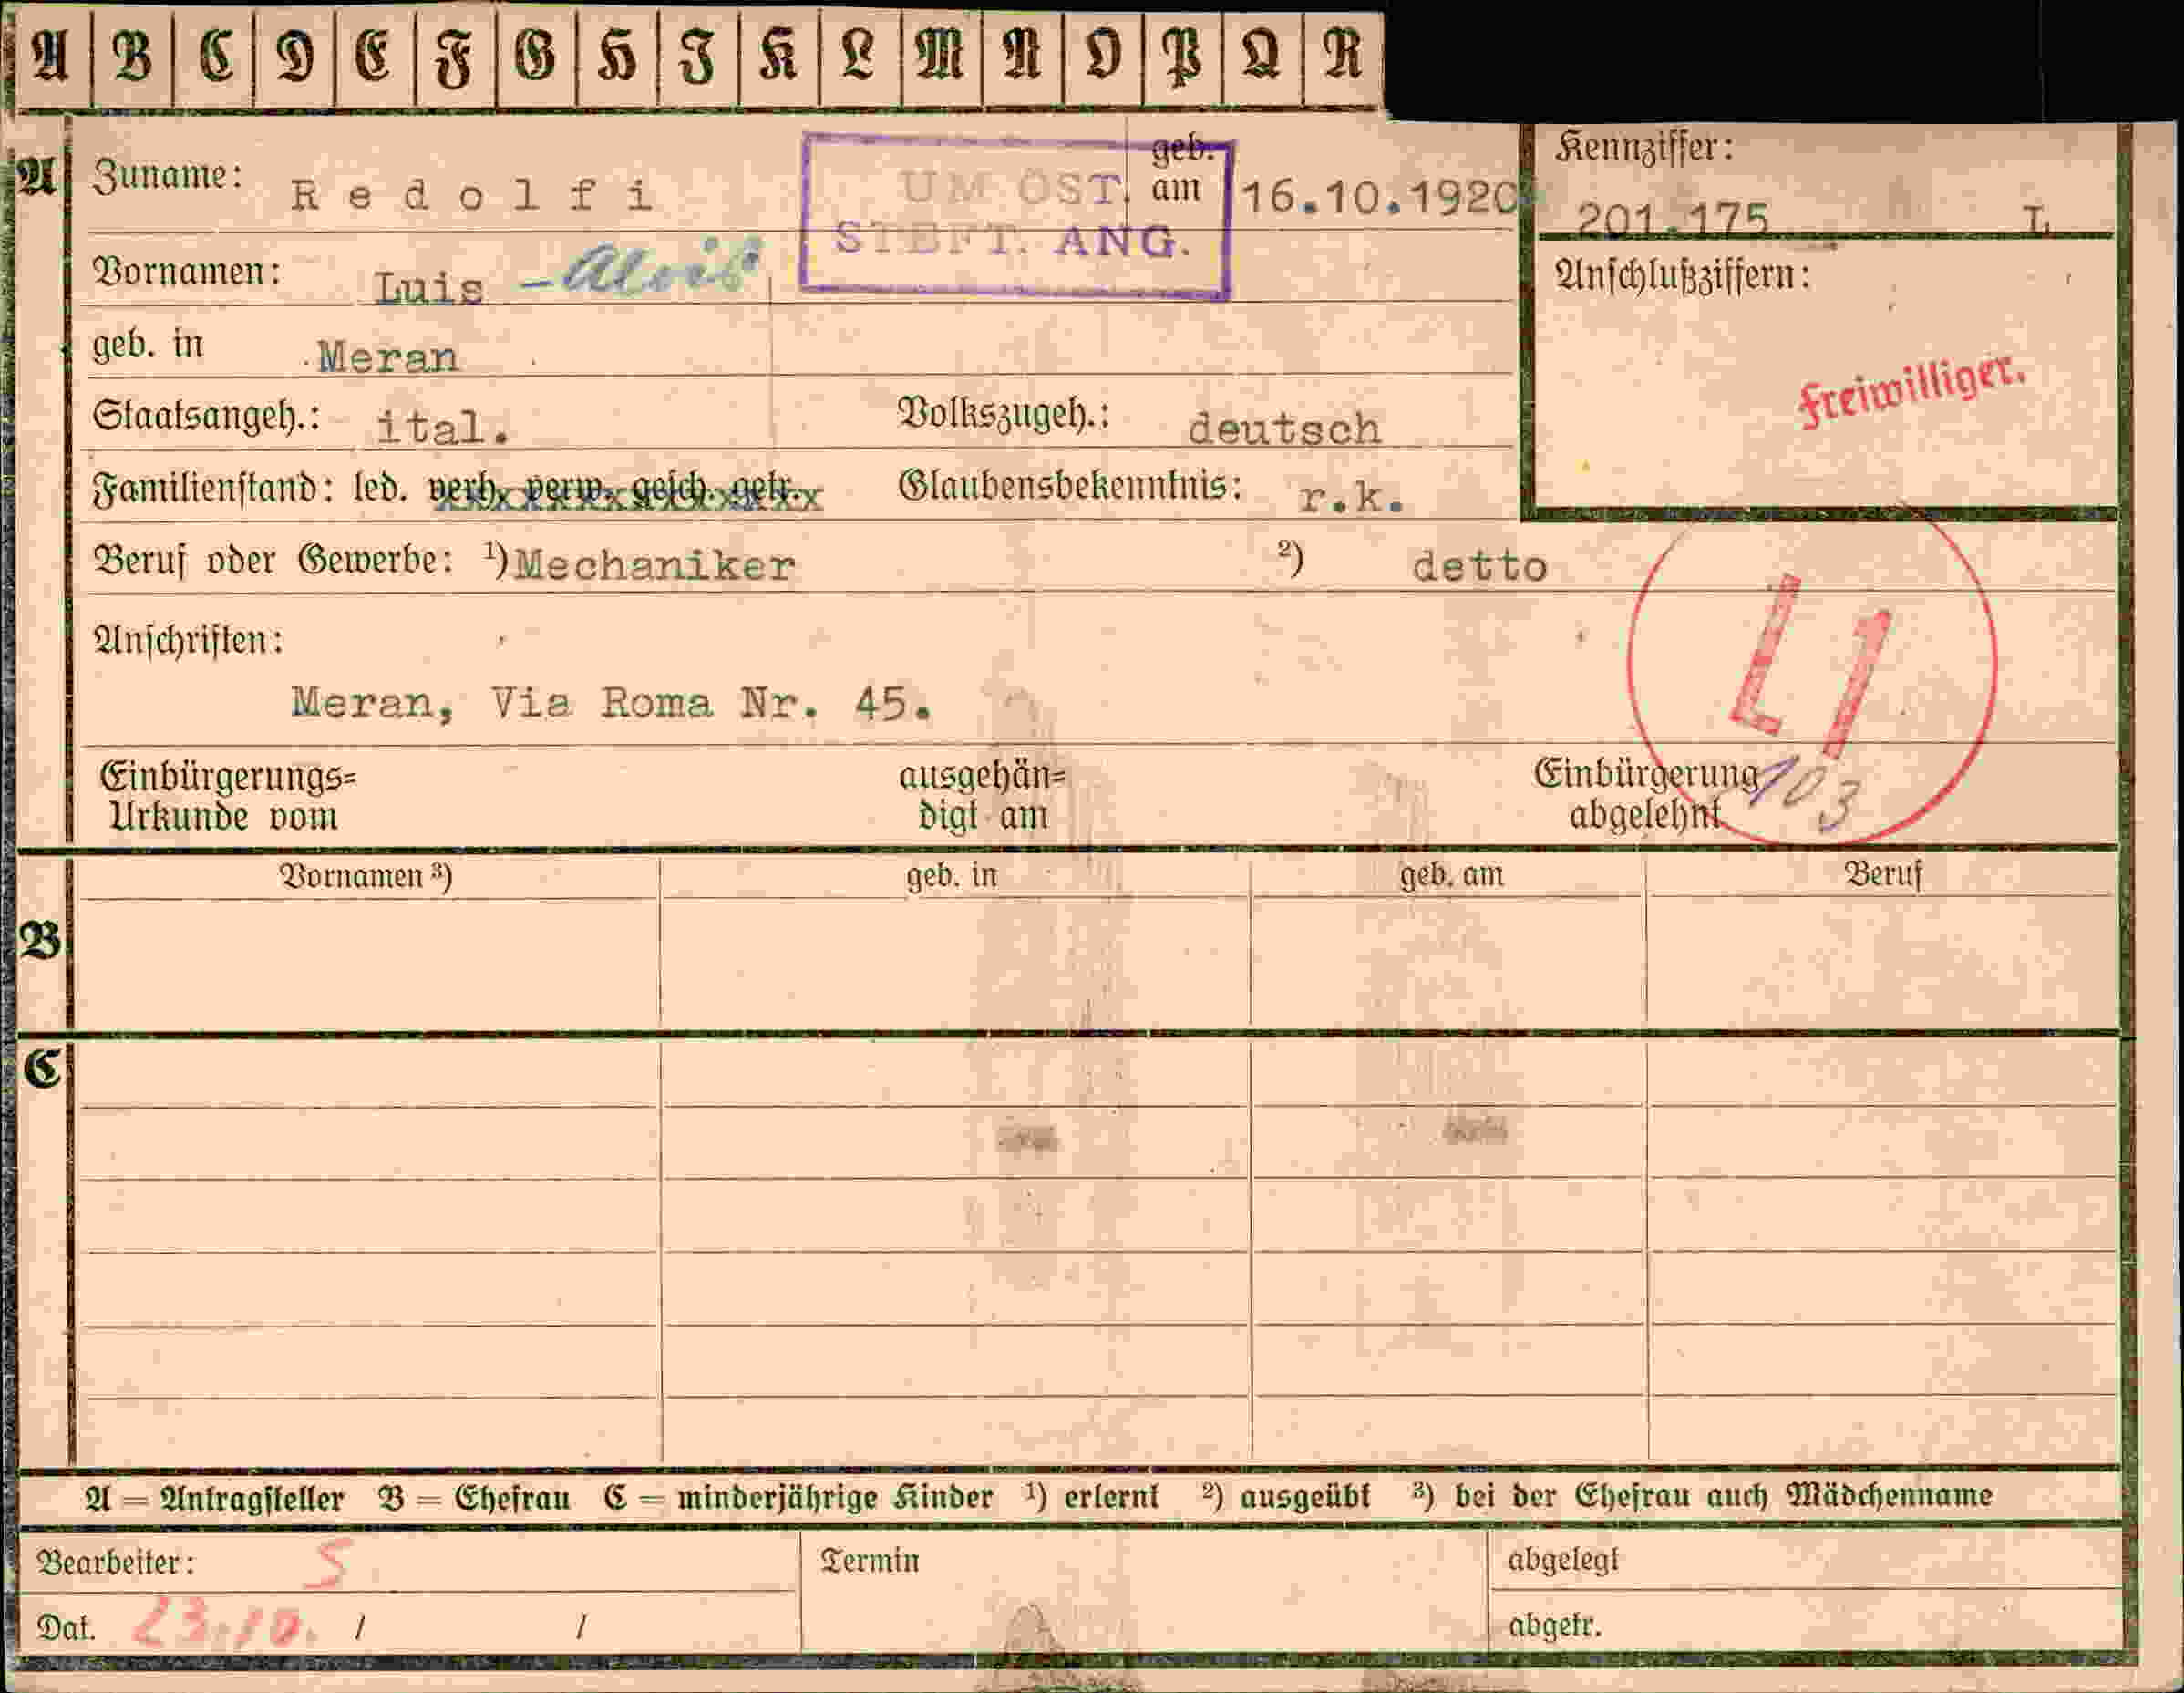 A B C D E F G H I K L M N O P Q R
A
Zuname: Redolfi
UM ÖST.
STBFT. ANG.
geb. am 16.10.1920
Kennziffer:
201.175 L
Vornamen: Luis - Alois
Anschlußziffern:
geb. in Meran
Freiwilliger.
Staatsangeh.: ital. Volkszugeh.: deutsch
Familienstand: led. verh. verw. gesch. getr. Glaubensbekenntnis: r.k.
Beruf oder Gewerbe: ¹) Mechaniker ²) detto
L1
Anschriften:
Meran, Via Roma Nr. 45.
103
Einbürgerungs= ausgehän= Einbürgerung
Urkunde vom digt am abgelehnt
Vornamen ³) geb. in geb. am Beruf
B
C
A = Antragsteller B = Ehefrau C = minderjährige Kinder ¹) erlernt ²) ausgeübt ³) bei der Ehefrau auch Mädchenname
Bearbeiter: S Termin abgelegt
Dat. 23.10. / / abgetr.